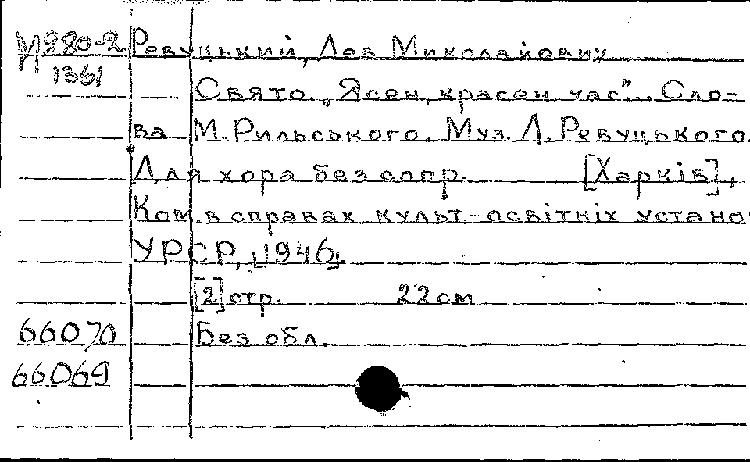 М220-2 Ревуцький, Лев Миколайович
1361 Свято. „Ясен, красен час". Сло-
ва М. Рильського. Муз. Л. Ревуцького.
Для хора без сопр. [Харків],
Ком. в справах культ.-освітніх устано
УРСР, [1946].
[2] стр. 22 см
66070 Без обл.
66069